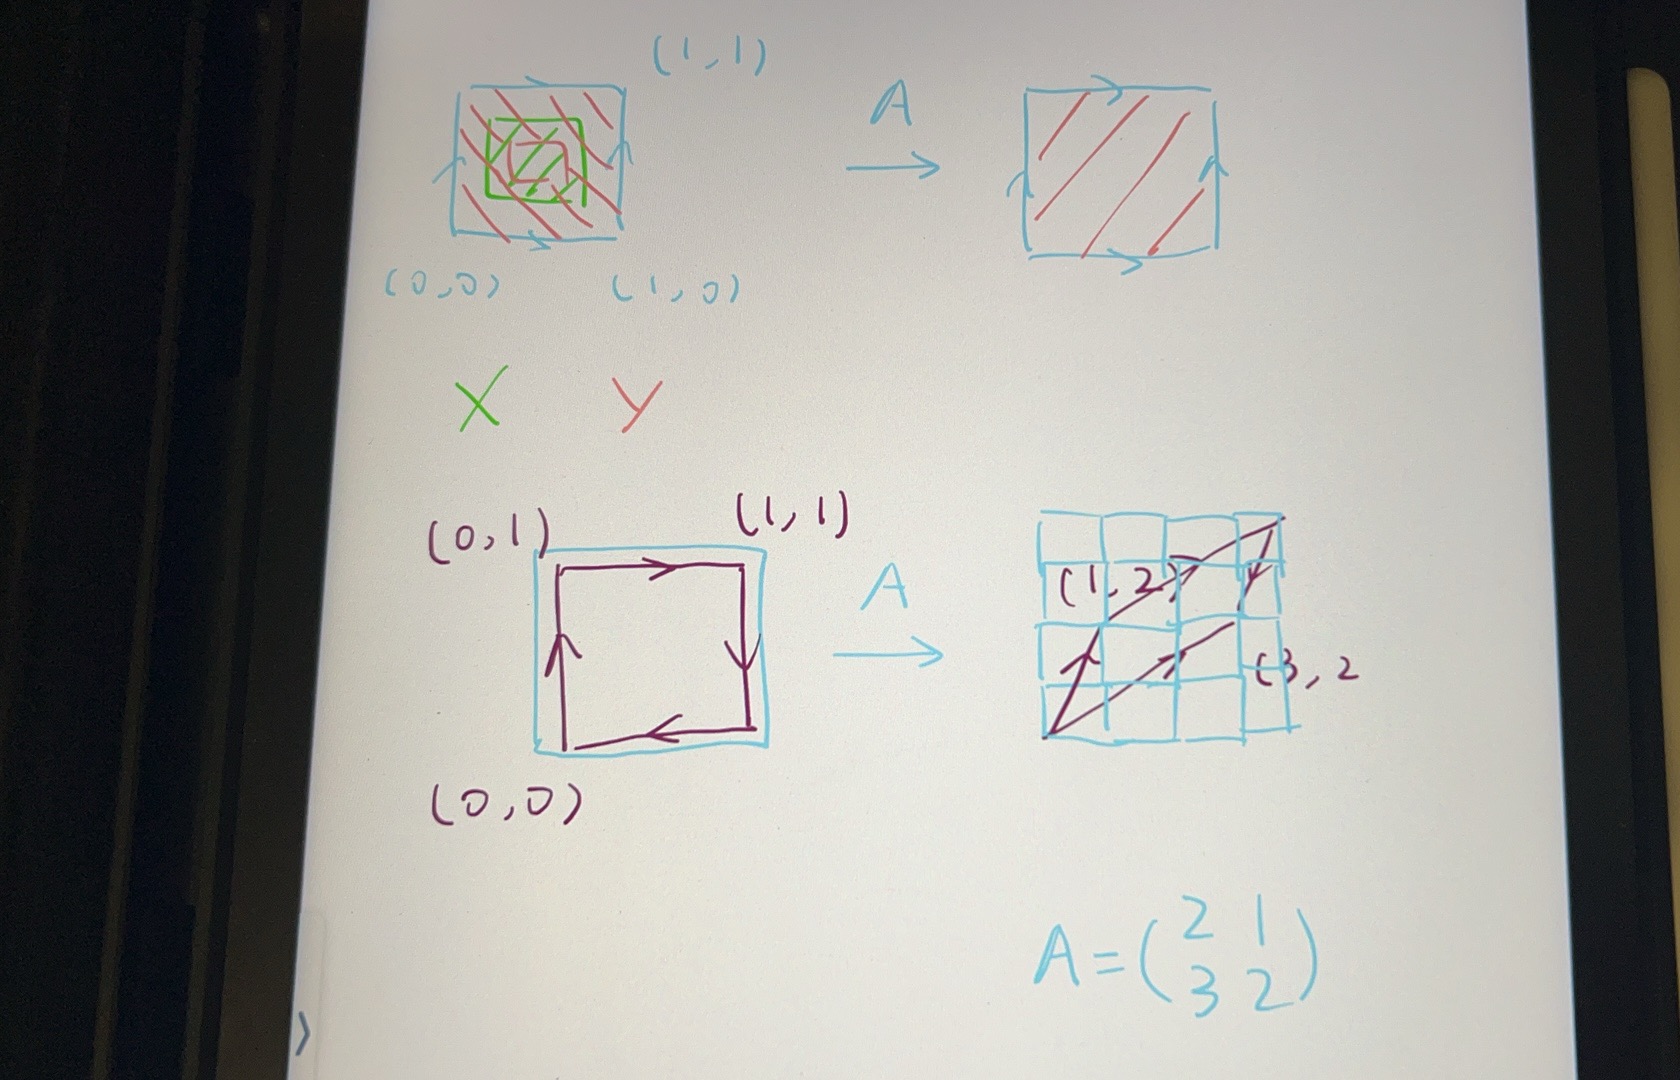 (1,1)
A
(0,0) (1,0)
X Y
(0,1) (1,1)
A
(1,2)
(3,2
(0,0)
A=(2 1
3 2)